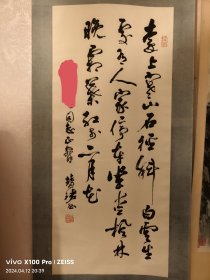 遠上寒山石徑斜白雲生
處有人家停車坐愛楓林
晚霜葉紅於二月花
同志正
vivo X100 Pro | ZEISS
2024.04.12 20:39:35